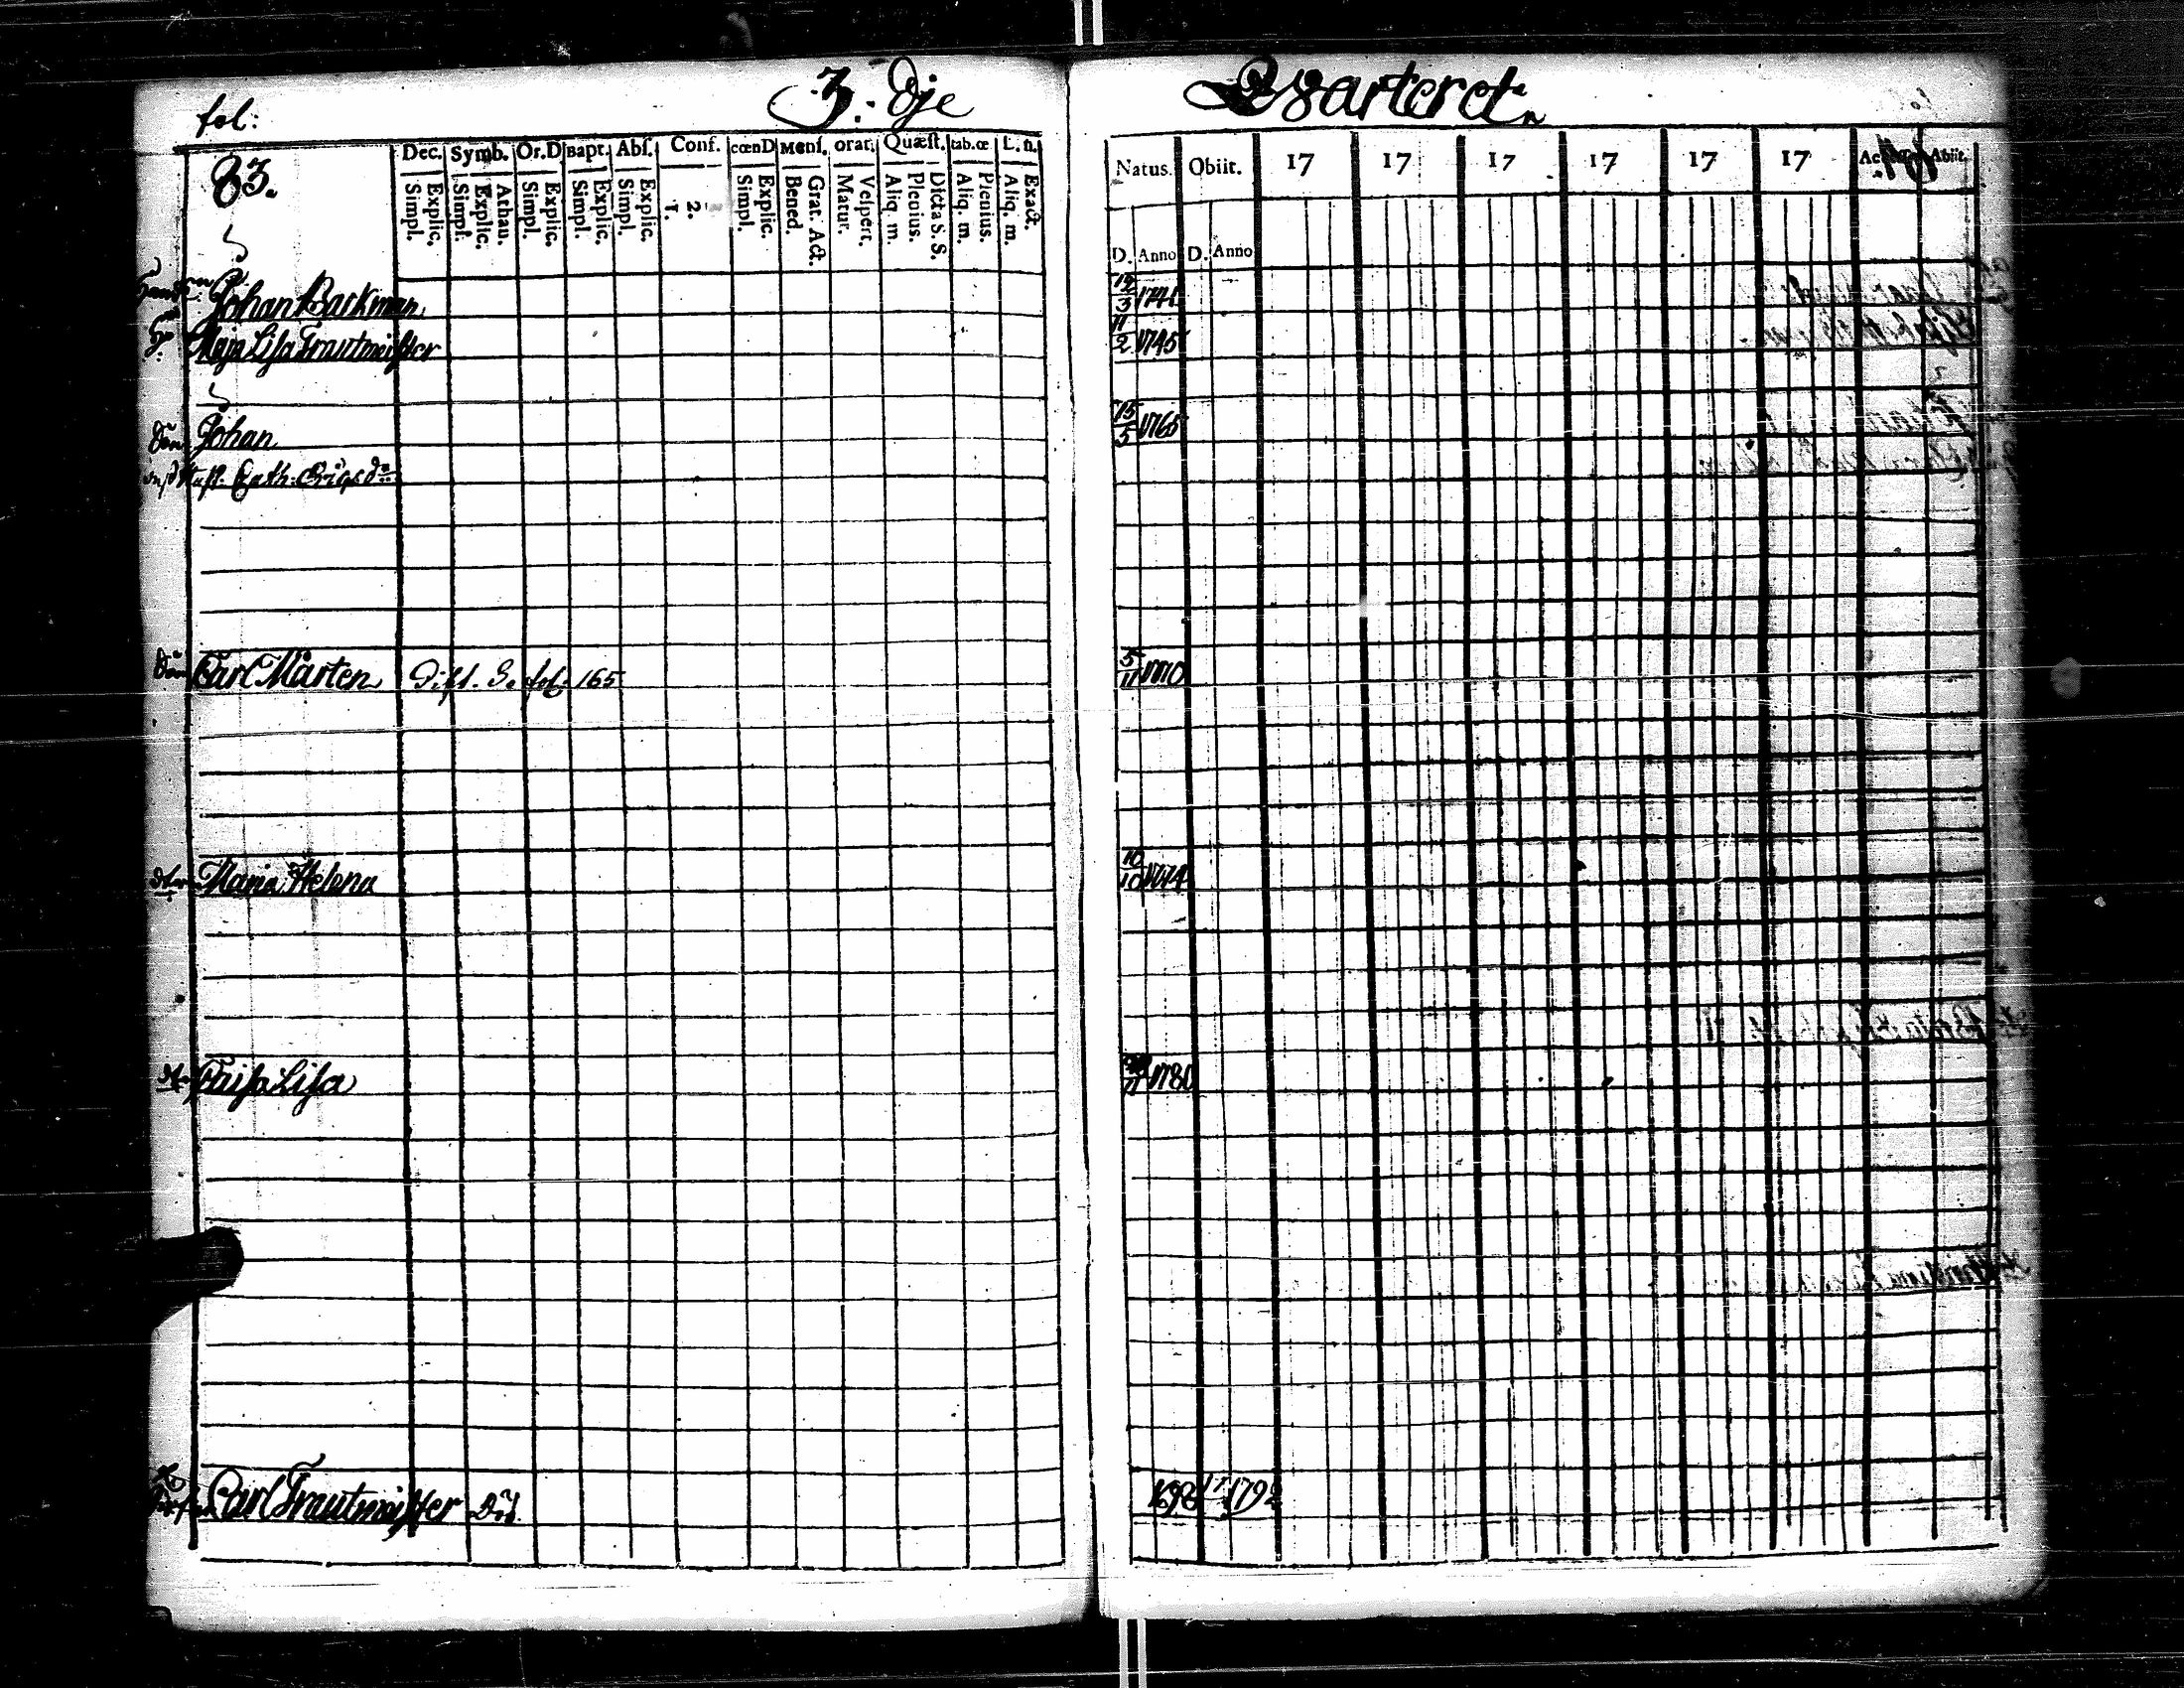 fol:
3. dje Qvarteret
83.
Dec. Symb. Or.D Bapt. Abſ. Conf. cœnD Menſ. orat. Quæſt. tab.œ L. n.
Simpl. Explic. Simpl. Explic. Athan. Simpl. Explic. Simpl. Explic. Simpl. Explic. 1. 2. Simpl. Explic. Bened. Grat. Act. Matur. Veſpert. Aliq. m. Plenius. Dicta S. S. Aliq. m. Plenius. Aliq. m. Exact.
Natus. Obiit. 17 17 17 17 17 17 Abiit.
D. Anno D. Anno
Johan Barkman
Maja Lisa Trautmeister 11/2 1745
Son Johan 15/5 1765
Cath.
Son Carl Mårten Dist. fol: 165 5/11 1770
Maria Helena 10/10
Caisa Lisa 1780
Carl Trautmeister Död. 1698 1792